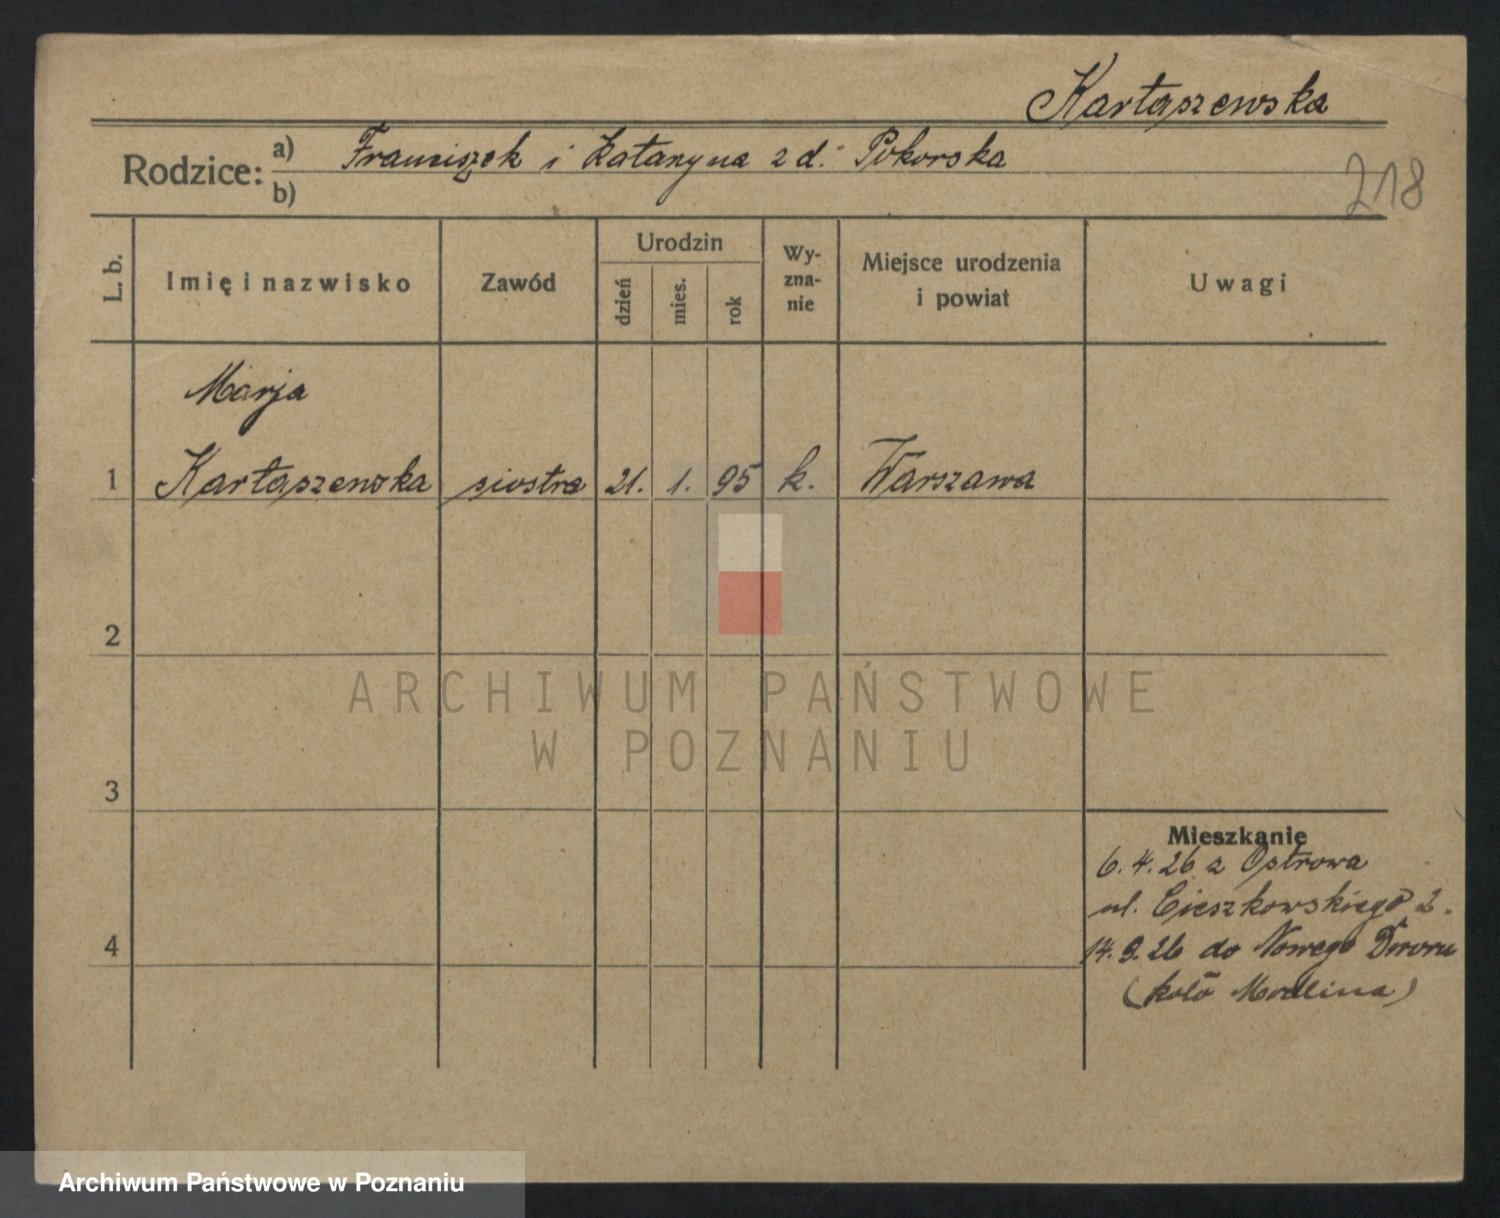 Kartaszewska
Rodzice: a) Franciszek i Katarzyna z d. Pokorska
b)
218
L. b.
Imię i nazwisko
Zawód
Urodzin
dzień
mies.
rok
Wy-
zna-
nie
Miejsce urodzenia
i powiat
Uwagi
Marja
1 Kartaszewska siostra 21. 1. 95 k. Warszawa
2
ARCHIWUM PAŃSTWOWE
W POZNANIU
3
Mieszkanie
6.4.26 z Ostrowa
ul. Cieszkowskiego 2.
4
14.9.26 do Nowego Dworu
(koło Modlina)
Archiwum Państwowe w Poznaniu